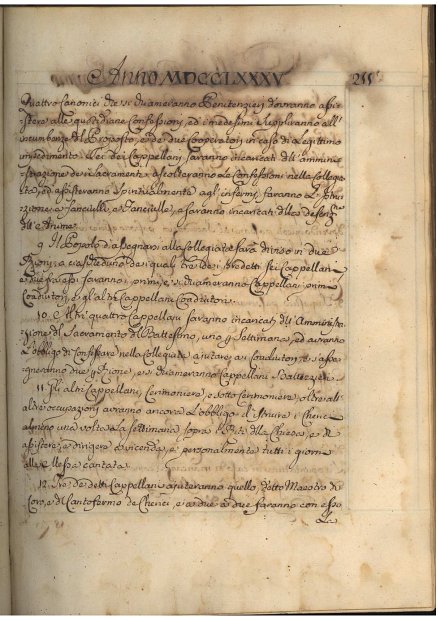 Anno MDCCLXXXV. 211
Quattro Canonici che si chiameranno Penitenzieri dovranno assi-
stere alle quotidiane Confessioni, ed i medesimi suppliranno all'
incumbenze del Proposto, e de due Cooperatori in caso di legittimo
impedimento. Sei dei Cappellani saranno incaricati dell'ammini-
strazione de Sacramenti, ascolteranno le Confessioni nella Collegia-
ta, ed assisteranno spiritualmente agl'infermi, faranno l'Istru-
zione a' Fanciulli, e Fanciulle, e saranno incaricati della
dell'Anime.
9. Il Popolo d'assegnarsi alla Collegiata sarà diviso in due
Porzioni, a ciascheduno dei quali tre dei predetti sei Cappellani
e due fra essi saranno i primi, e si chiameranno Cappellani primi
Conduttori, e gl'altri Cappellani Conduttori.
10. Altri quattro Cappellani saranno incaricati dell'Amministra-
zione del Sacramento del Battesimo, uno p Settimana, ed avranno
l'obbligo di Confessare nella Collegiata, aiutare i Conduttori, e s'asse-
gneranno due p Porzione, e si chiameranno Cappellani Battezzieri.
11. Gli altri Cappellani, Cerimoniere, e sotto Cerimoniere, oltre all'
altre occupazioni avranno ancora l'obbligo d'istruire i Cherici
almeno una volta la settimana sopra i Riti della Chiesa, e di
assistere, e dirigere a vicenda, e personalmente tutti i giorni
alla Messa cantata.
12. Tre de detti Cappellani aiuteranno quello, detto Maestro di
Coro, e di Cantofermo de Cherici, e a due a due faranno con esso
Le